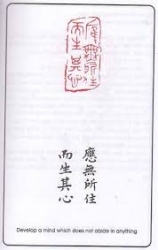 應無所住
而生其心
應無所住
而生其心
Develop a mind which does not abide in anything